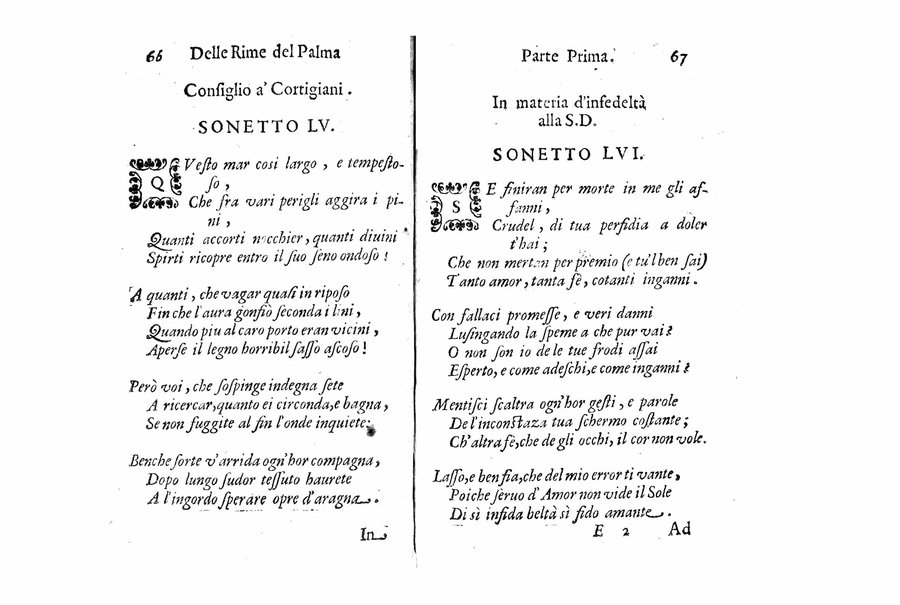 66 Delle Rime del Palma
Conſiglio a' Cortigiani.
SONETTO LV.
QVeſto mar cosi largo, e tempeſto-
ſo,
Che fra vari perigli aggira i pi-
ni,
Quanti accorti nocchier, quanti diuini
Spirti ricopre entro il ſuo ſeno ondoſo!
A quanti, che vagar quaſi in ripoſo
Fin che l'aura gonfiò ſeconda i lini,
Quando piu al caro porto eran vicini,
Aperſe il legno horribil ſaſſo aſcoſo!
Però voi, che ſoſpinge indegna ſete
A ricercar, quanto ei circonda, e bagna,
Se non fuggite al fin l'onde inquiete;
Benche ſorte v'arrida ogn'hor compagna,
Dopo lungo ſudor teſſuto haurete
A l'ingordo ſperare opre d'aragna.
In
Parte Prima. 67
In materia d'infedeltà
alla S.D.
SONETTO LVI.
SE finiran per morte in me gli af-
fanni,
Crudel, di tua perfidia a doler
t'hai;
Che non mertan per premio (e tu'l ben ſai)
Tanto amor, tanta fè, cotanti inganni.
Con fallaci promeſſe, e veri danni
Luſingando la ſpeme a che pur vai?
O non ſon io de le tue frodi aſſai
Eſperto, e come adeſchi, e come inganni?
Mentiſci ſcaltra ogn'hor geſti, e parole
De l'inconſtāza tua ſchermo coſtante;
Ch'altra fè, che de gli occhi, il cor non vole.
Laſſo, e ben fia, che del mio error ti vante,
Poiche ſeruo d'Amor non vide il Sole
Di sì infida beltà sì fido amante.
E 2 Ad